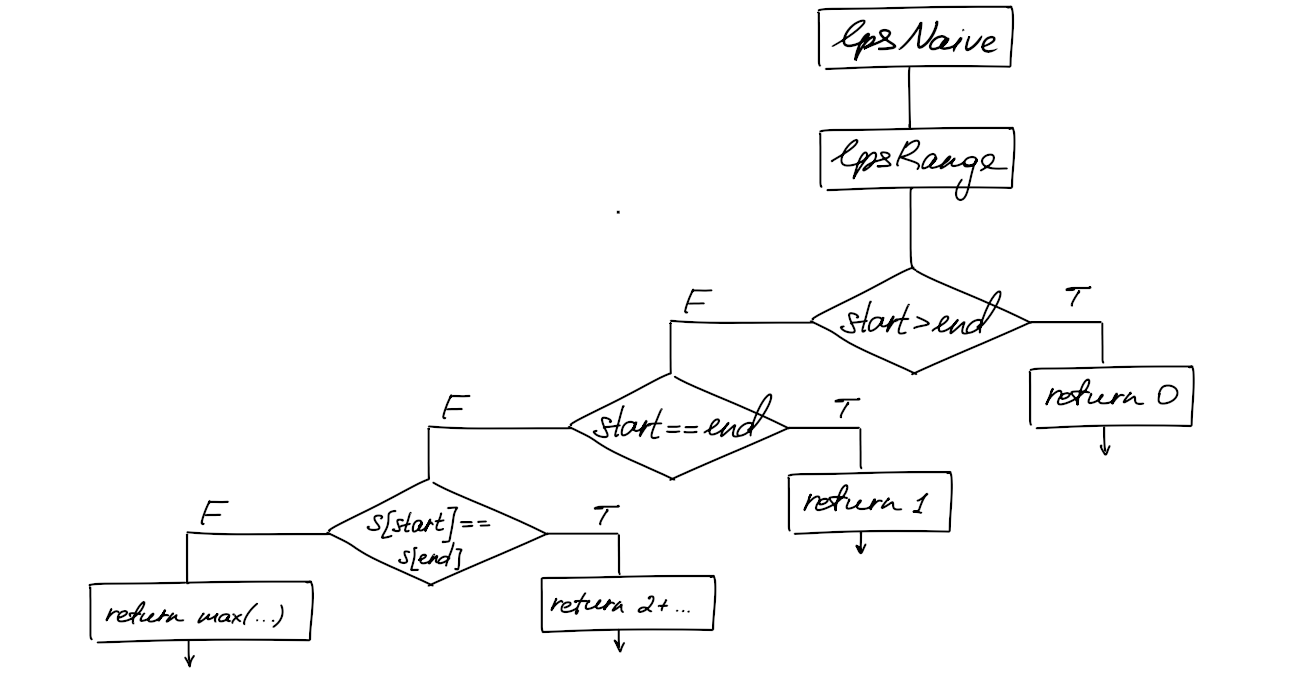 lpsNaive
lpsRange
F
T
start>end
return 0
F
T
start==end
return 1
F
T
s[start]==
s[end]
return max(...)
return 2+...